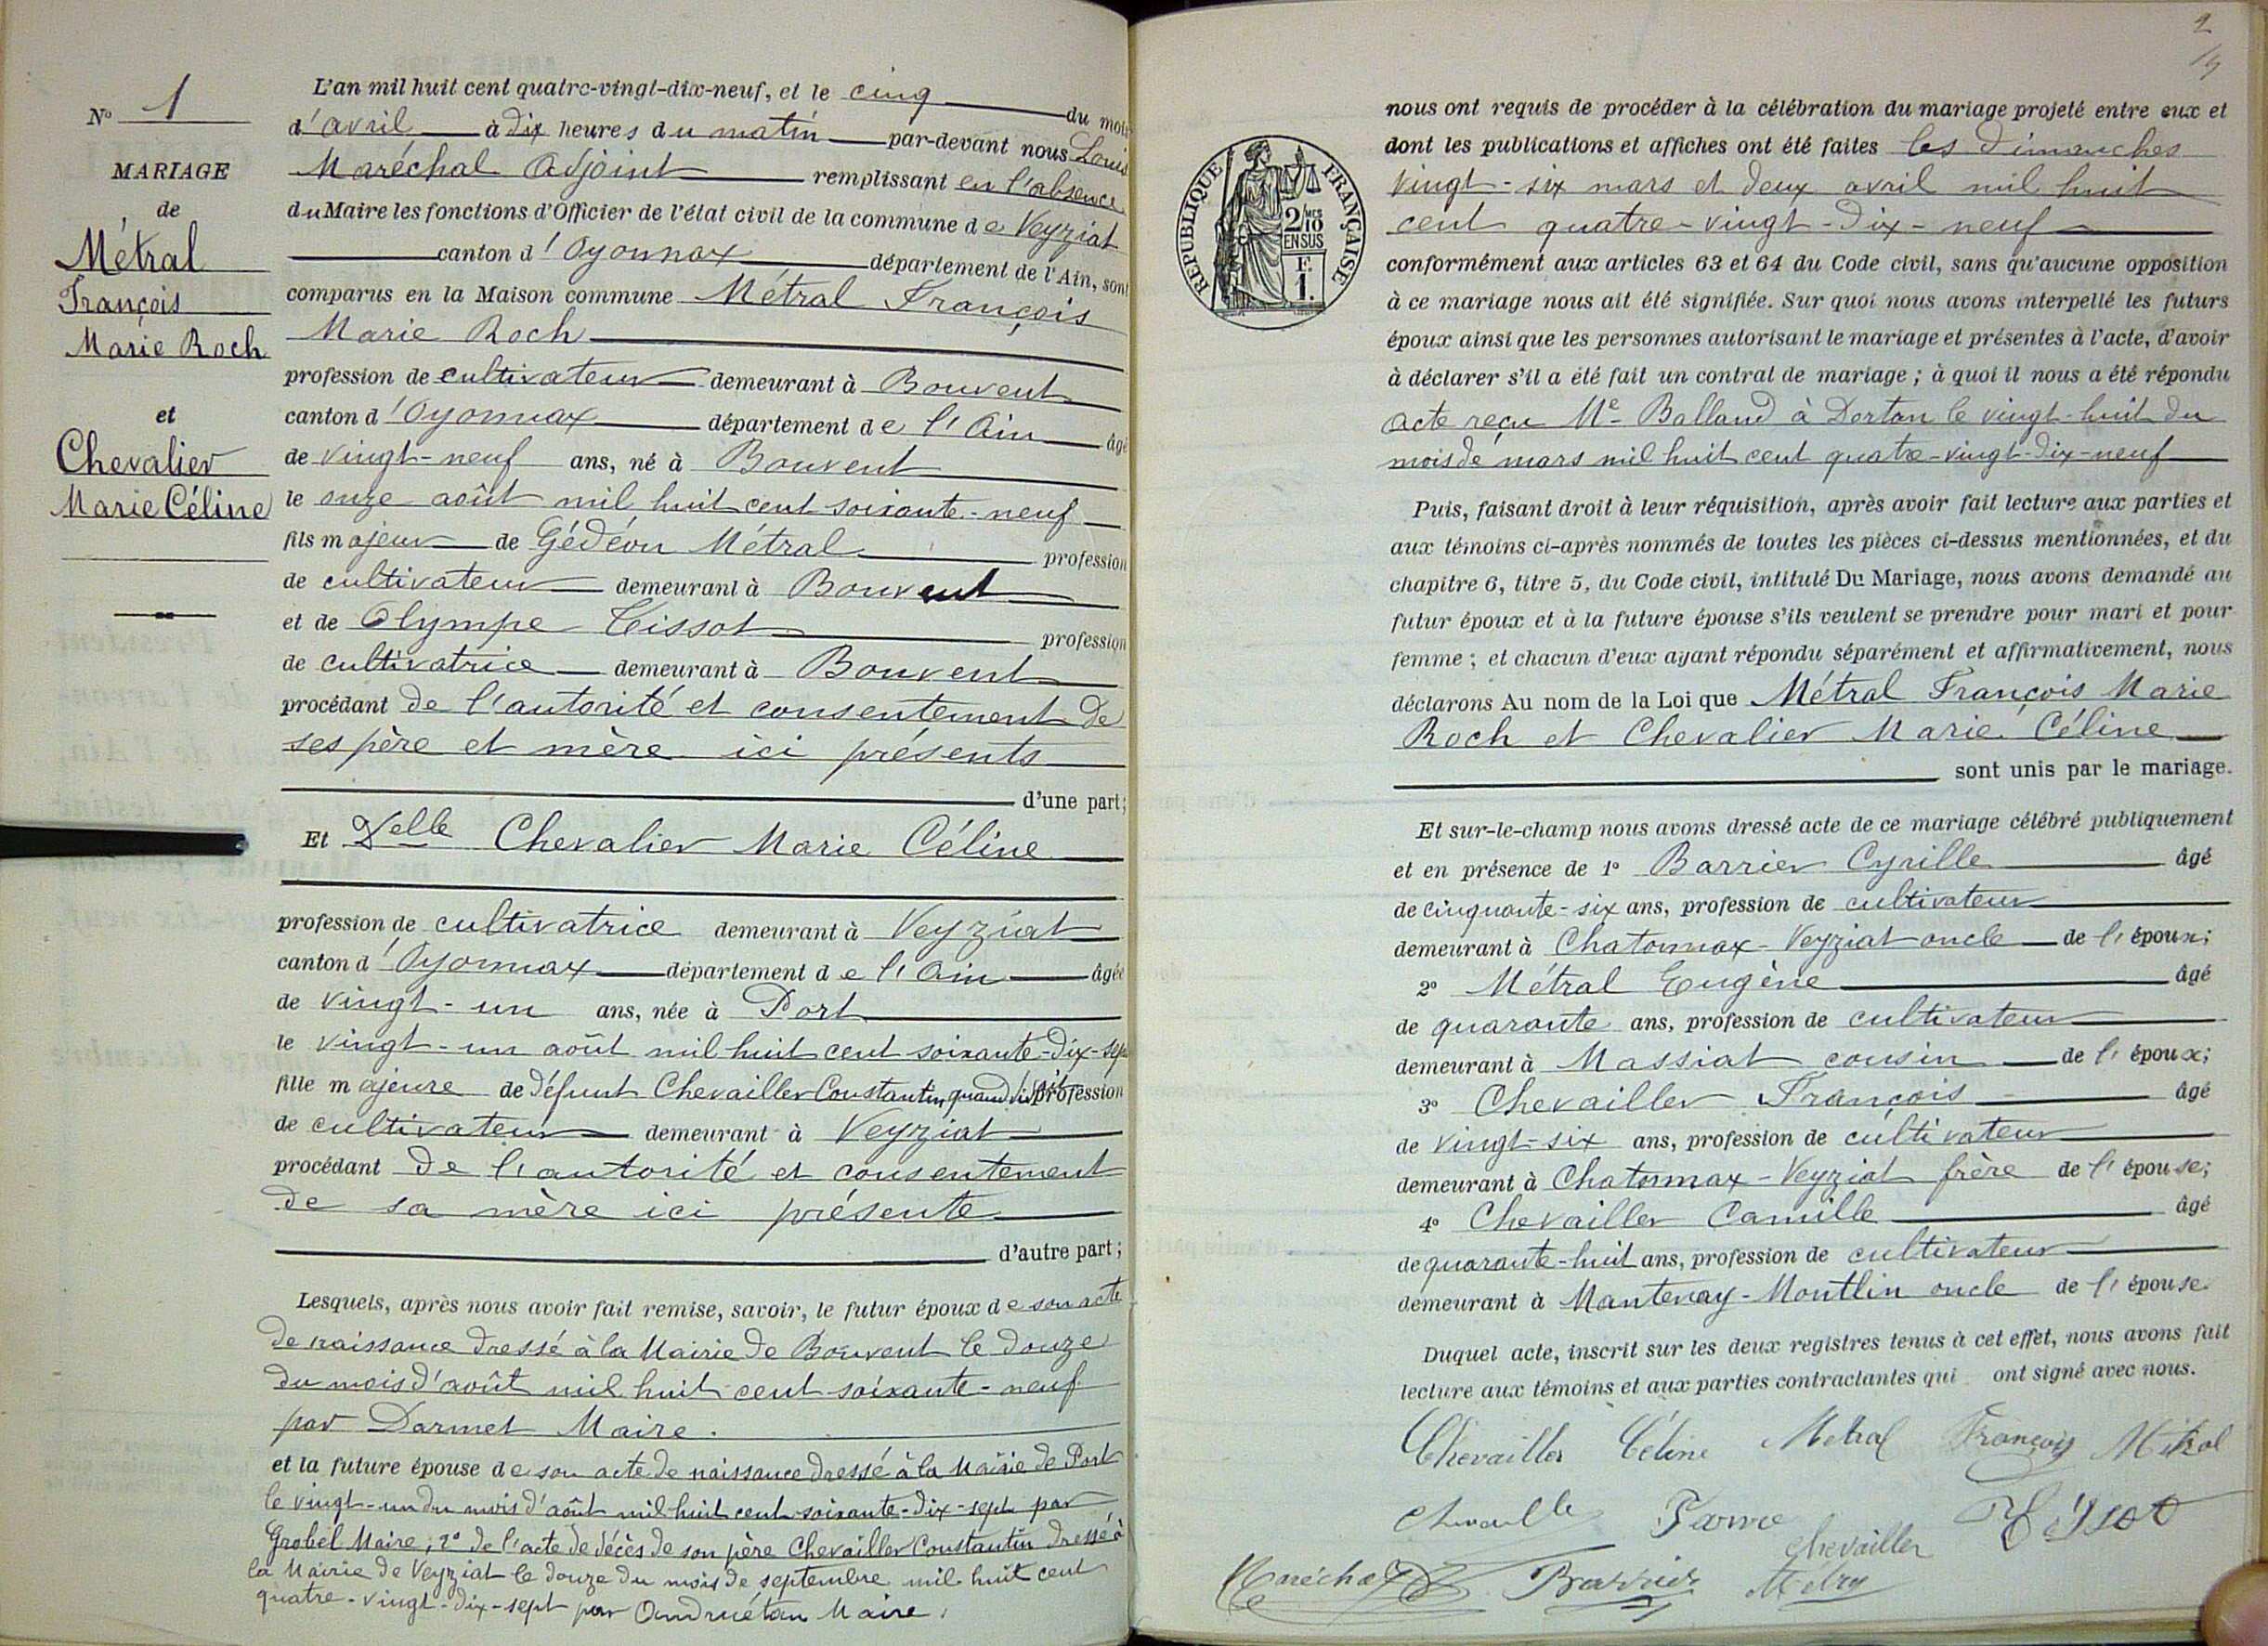 N° 1
MARIAGE
de
Métral
François
Marie Roch
et
Chevalier
Marie Céline
L'an mil huit cent quatre-vingt-dix-neuf, et le cinq du mois
d'avril à dix heures du matin par-devant nous Louis
Maréchal Adjoint remplissant en l'absence
du Maire les fonctions d'Officier de l'état civil de la commune de Veyziat
canton d'Oyonnax département de l'Ain, sont
comparus en la Maison commune Métral François
Marie Roch
profession de cultivateur demeurant à Bouvent
canton d'Oyonnax département de l'Ain âgé
de vingt-neuf ans, né à Bouvent
le onze août mil huit cent soixante-neuf
fils majeur de Gédéon Métral profession
de cultivateur demeurant à Bouvent
et de Olympe Tissot profession
de cultivatrice demeurant à Bouvent
procédant de l'autorité et consentement de
ses père et mère ici présents
d'une part;
Et Delle Chevalier Marie Céline
profession de cultivatrice demeurant à Veyziat
canton d'Oyonnax département de l'Ain âgée
de vingt-un ans, née à Port
le vingt-un août mil huit cent soixante-dix-sept
fille majeure de défunt Chevailler Constantin quand vivait profession
de cultivateur demeurant à Veyziat
procédant de l'autorité et consentement
de sa mère ici présente
d'autre part;
Lesquels, après nous avoir fait remise, savoir, le futur époux de son acte
de naissance dressé à la Mairie de Bouvent le douze
du mois d'août mil huit cent soixante-neuf
par Darmet Maire.
et la future épouse de son acte de naissance dressé à la Mairie de Port
le vingt-un du mois d'août mil huit cent soixante-dix-sept par
Grobel Maire, 2° de l'acte de décès de son père Chevailler Constantin dressé à
la Mairie de Veyziat le douze du mois de septembre mil huit cent
quatre-vingt-dix-sept par Andruétan Maire.
2
nous ont requis de procéder à la célébration du mariage projeté entre eux et
dont les publications et affiches ont été faites les dimanches
vingt-six mars et deux avril mil huit
cent quatre-vingt-dix-neuf
RÉPUBLIQUE FRANÇAISE
2/10 MES
EN SUS
F.
1.
conformément aux articles 63 et 64 du Code civil, sans qu'aucune opposition
à ce mariage nous ait été signifiée. Sur quoi nous avons interpellé les futurs
époux ainsi que les personnes autorisant le mariage et présentes à l'acte, d'avoir
à déclarer s'il a été fait un contrat de mariage; à quoi il nous a été répondu
acte reçu Me Balland à Dortan le vingt-huit du
mois de mars mil huit cent quatre-vingt-dix-neuf
Puis, faisant droit à leur réquisition, après avoir fait lecture aux parties et
aux témoins ci-après nommés de toutes les pièces ci-dessus mentionnées, et du
chapitre 6, titre 5, du Code civil, intitulé Du Mariage, nous avons demandé au
futur époux et à la future épouse s'ils veulent se prendre pour mari et pour
femme; et chacun d'eux ayant répondu séparément et affirmativement, nous
déclarons Au nom de la Loi que Métral François Marie
Roch et Chevalier Marie Céline
sont unis par le mariage.
Et sur-le-champ nous avons dressé acte de ce mariage célébré publiquement
et en présence de 1° Barrier Cyrille âgé
de cinquante-six ans, profession de cultivateur
demeurant à Chatonnax-Veyziat oncle de l'époux;
2° Métral Eugène âgé
de quarante ans, profession de cultivateur
demeurant à Massiat cousin de l'époux;
3° Chevailler François âgé
de vingt-six ans, profession de cultivateur
demeurant à Chatonnax-Veyziat frère de l'épouse;
4° Chevailler Camille âgé
de quarante-huit ans, profession de cultivateur
demeurant à Mantenay-Montlin oncle de l'épouse.
Duquel acte, inscrit sur les deux registres tenus à cet effet, nous avons fait
lecture aux témoins et aux parties contractantes qui ont signé avec nous.
Chevailler Céline Métral François Métral
Tissot
Chevailler
Maréchal Barrier